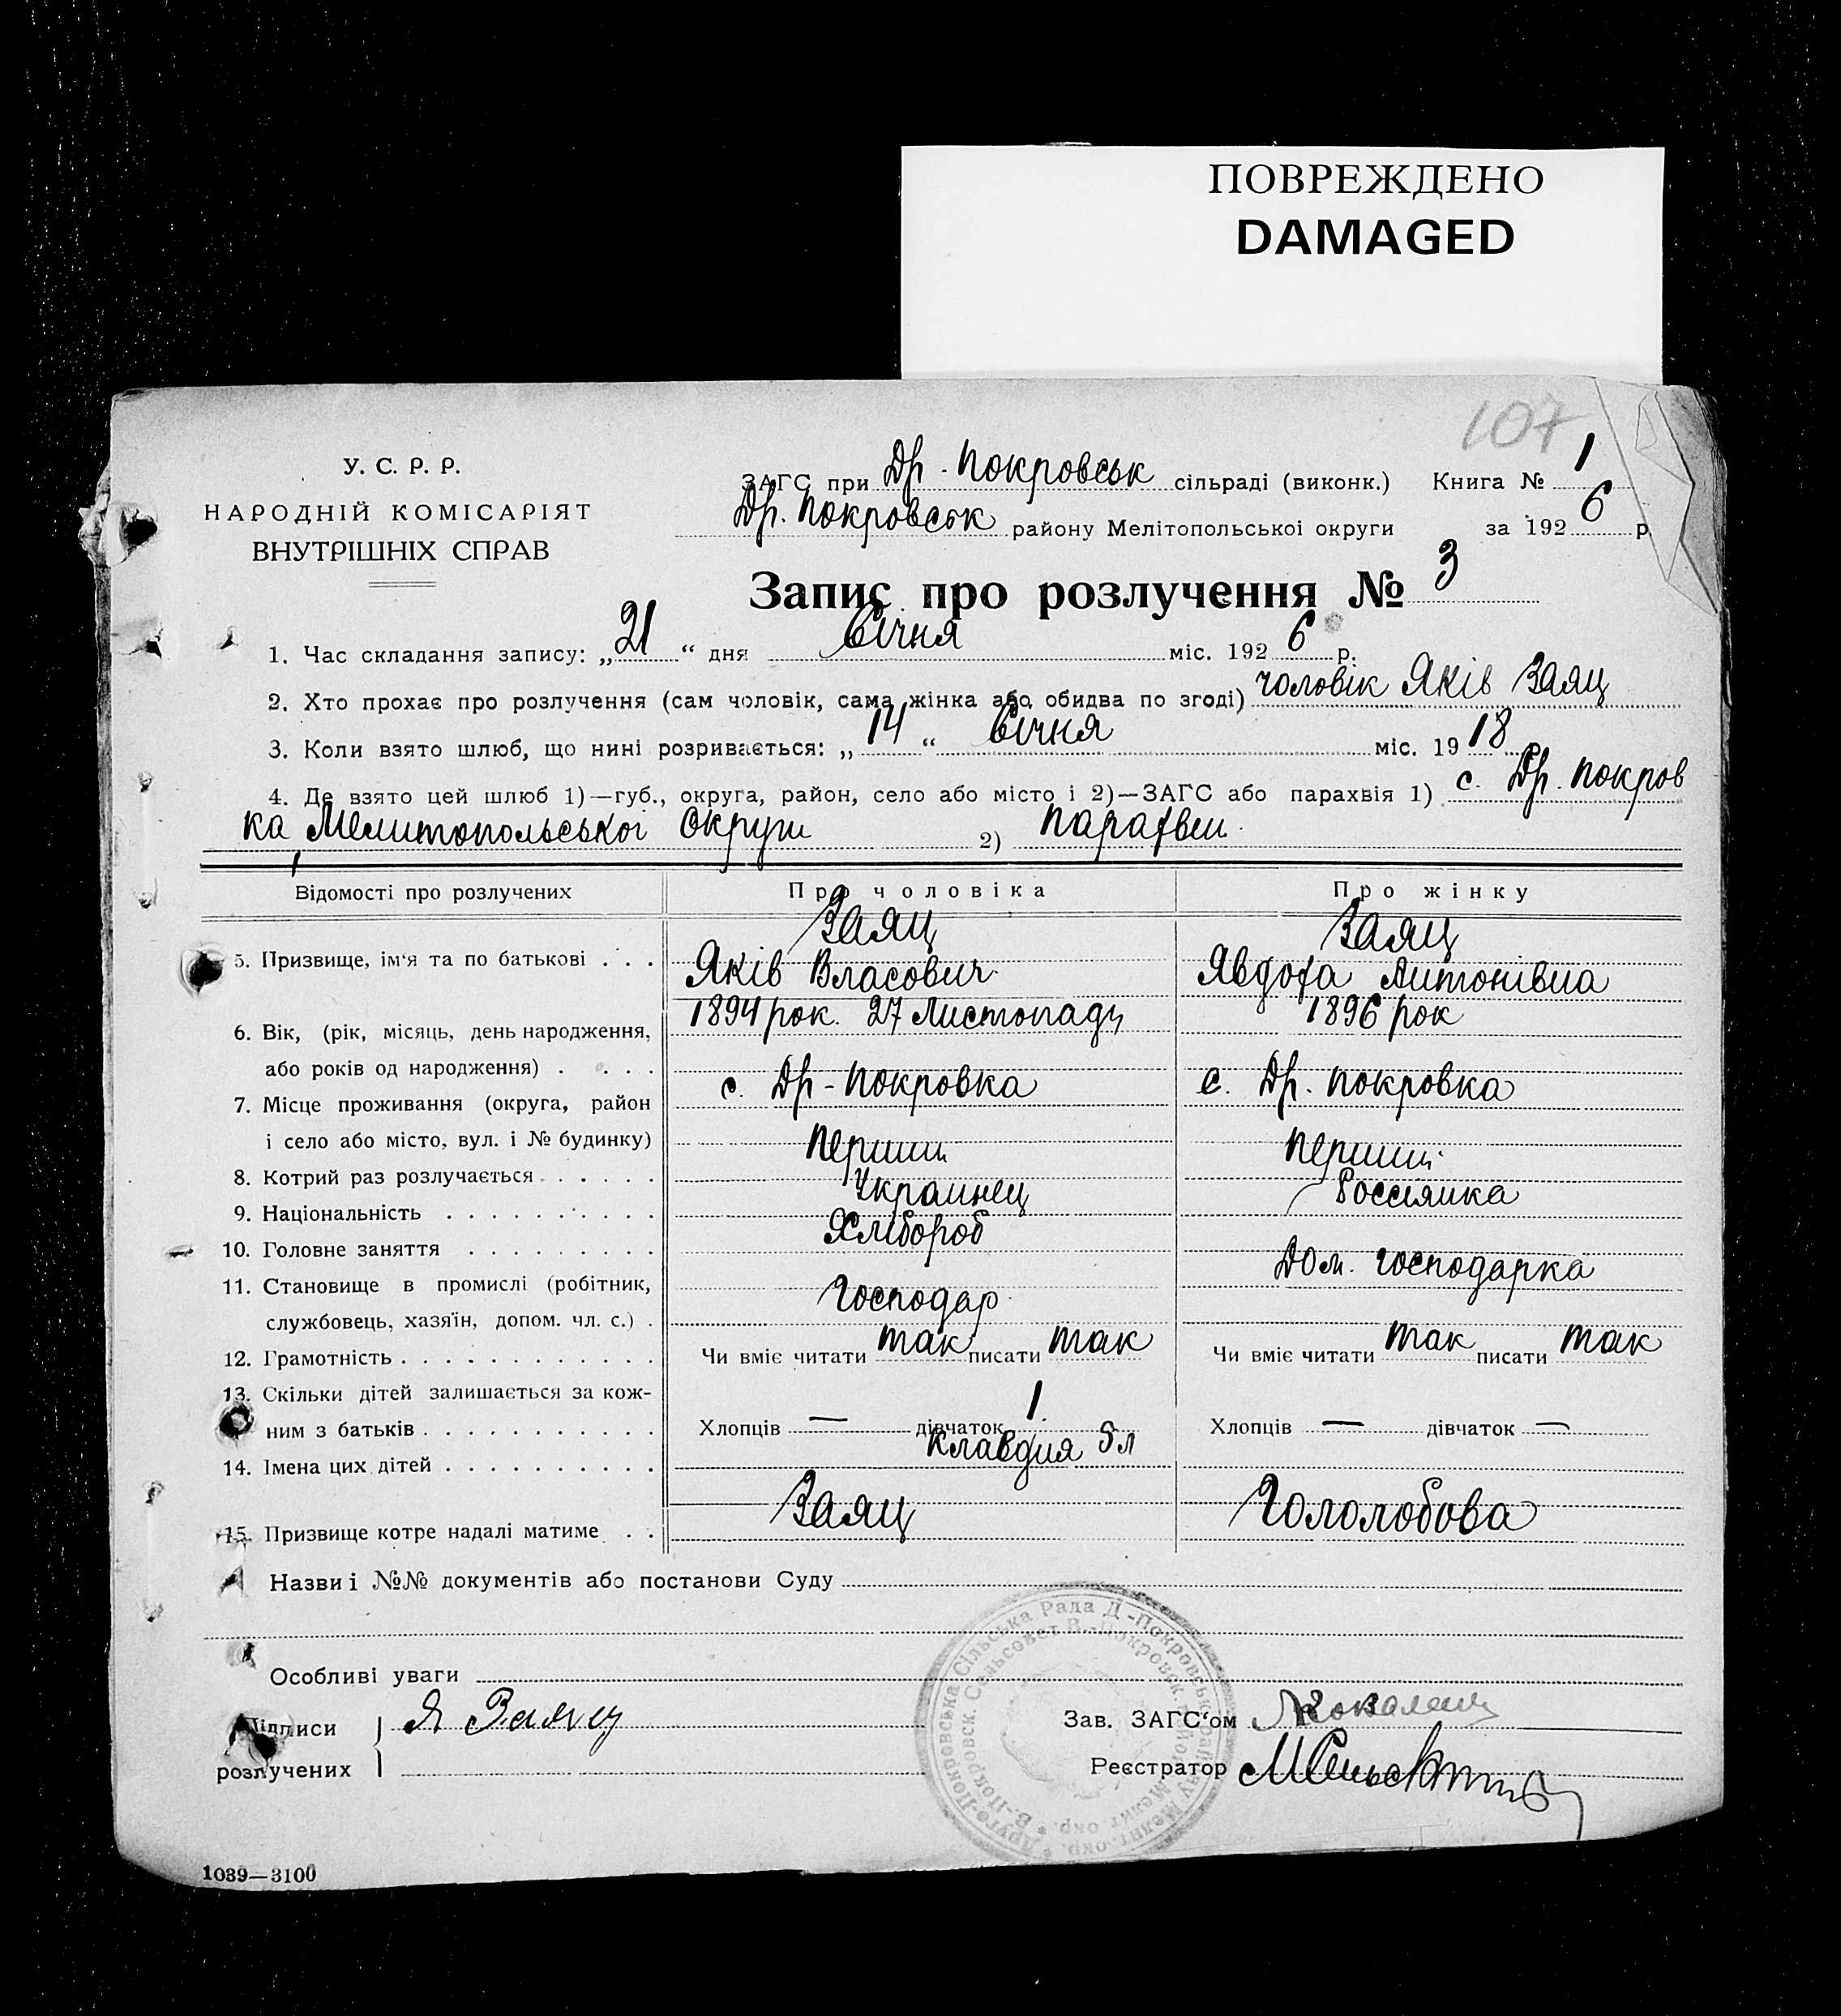 ПОВРЕЖДЕНО
DAMAGED
107
У. С. Р. Р.
НАРОДНІЙ КОМІСАРІЯТ
ВНУТРІШНІХ СПРАВ
ЗАГС при Др-Покровськ сільраді (виконк.) Книга № 1
Др. Покровськ району Мелітопольськоі округи за 1926 р
Запис про розлучення № 3
1. Час складання запису: „21“ дня Січня міс. 1926 р.
2. Хто прохає про розлучення (сам чоловік, сама жінка або обидва по згоді) чоловік Яків Заяц
3. Коли взято шлюб, що нині розривається: „14“ Січня міс. 1918 р.
4. Де взято цей шлюб 1)—губ., округа, район, село або місто і 2)—ЗАГС або парахвія 1) с. Др. Покров
ка, Мелитопольськоі Округи 2) Парахвии
Відомості про розлучених Про чоловіка Про жінку
Заяц Заяц
5. Призвище, ім'я та по батькові . . . Яків Власович Явдоха Антонівна
1894 рок. 27 Листопаду 1896 рок
6. Вік, (рік, місяць, день народження,
або років од народження) . . . .
с. Др-Покровка с. Др. Покровка
7. Місце проживання (округа, район
і село або місто, вул. і № будинку)
8. Котрий раз розлучається . . . . . . Перший Перший
9. Національність . . . . . . . . . . Украинец Россіянка
10. Головне заняття . . . . . . . . . Хлібороб Дом. господарка
11. Становище в промислі (робітник,
службовець, хазяїн, допом. чл. с.) . Господар
12. Грамотність . . . . . . . . . . . . Чи вміє читати так писати так Чи вміє читати так писати так
13. Скільки дітей залишається за кож-
ним з батьків . . . . . . . . . . . Хлопців — дівчаток 1. Хлопців — дівчаток —
14. Імена цих дітей . . . . . . . . . . Клавдия 5 л
15. Призвище котре надалі матиме . . Заяц Гололобова
Назви і №№ документів або постанови Суду
Особливі уваги
Підписи Я Заяц Зав. ЗАГС'ом
розлучених Реєстратор
Друго-Покровська Сільська Рада Д-Покровськ. району Мелит. окр.
В.-Покровск. Сельсовет В.-Покровск. район Мелит окр.
1039—3100